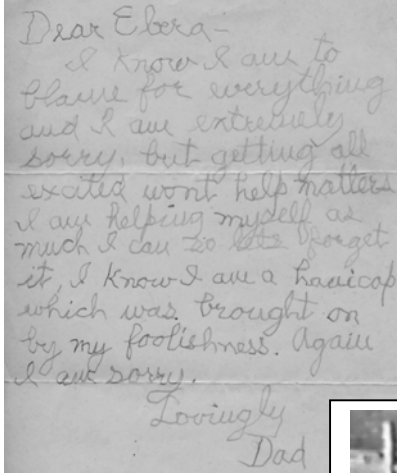 Dear Ebera-
I know I am to
blame for everything
and I am extremely
sorry, but getting all
excited wont help matters
I am helping myself as
much I can so lets forget
it, I know I am a hanicap
which was brought on
by my foolishness. Again
I am sorry.
Lovingly
Dad